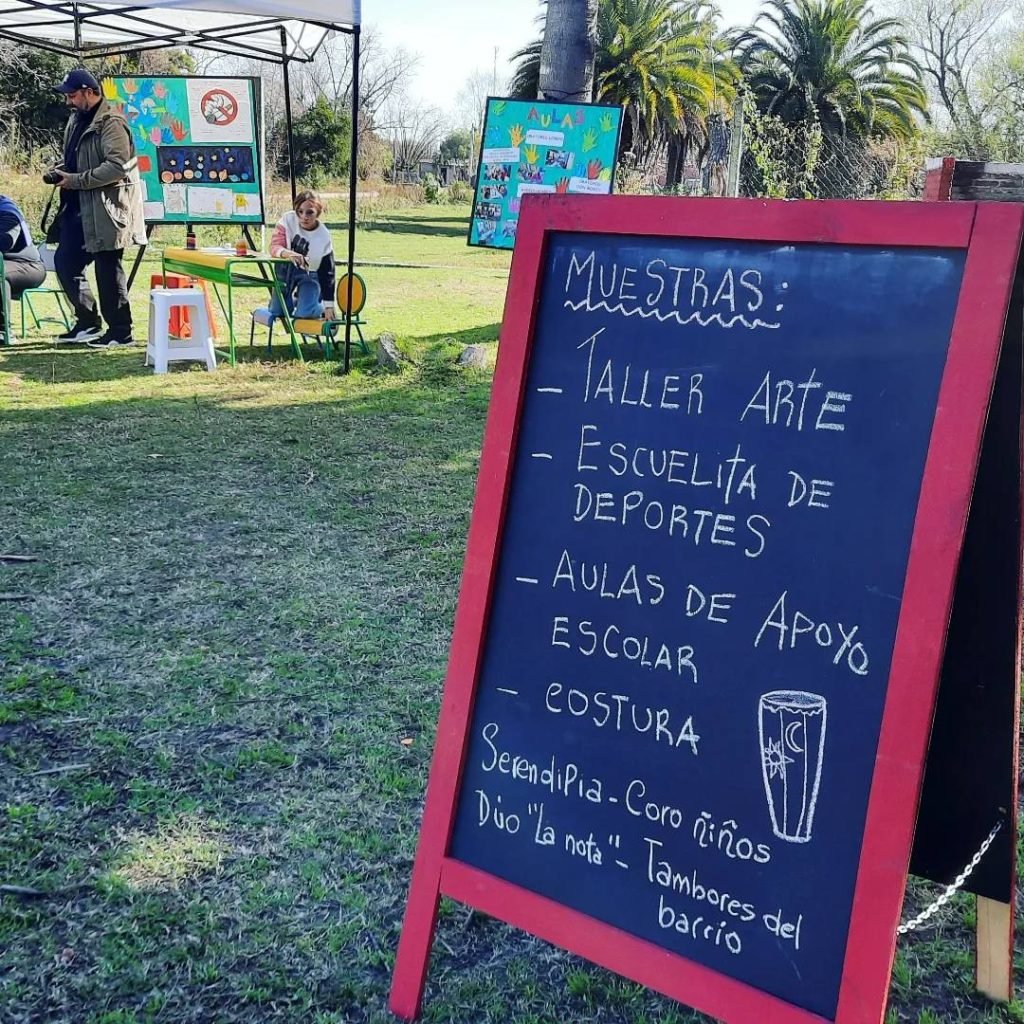 AULAS
MUESTRAS:
- TALLER ARTE
- ESCUELITA DE
DEPORTES
- AULAS DE APOYO
ESCOLAR
- COSTURA
SerendiPia - Coro ñiños
Dúo "La nota" - Tambores del
barrio